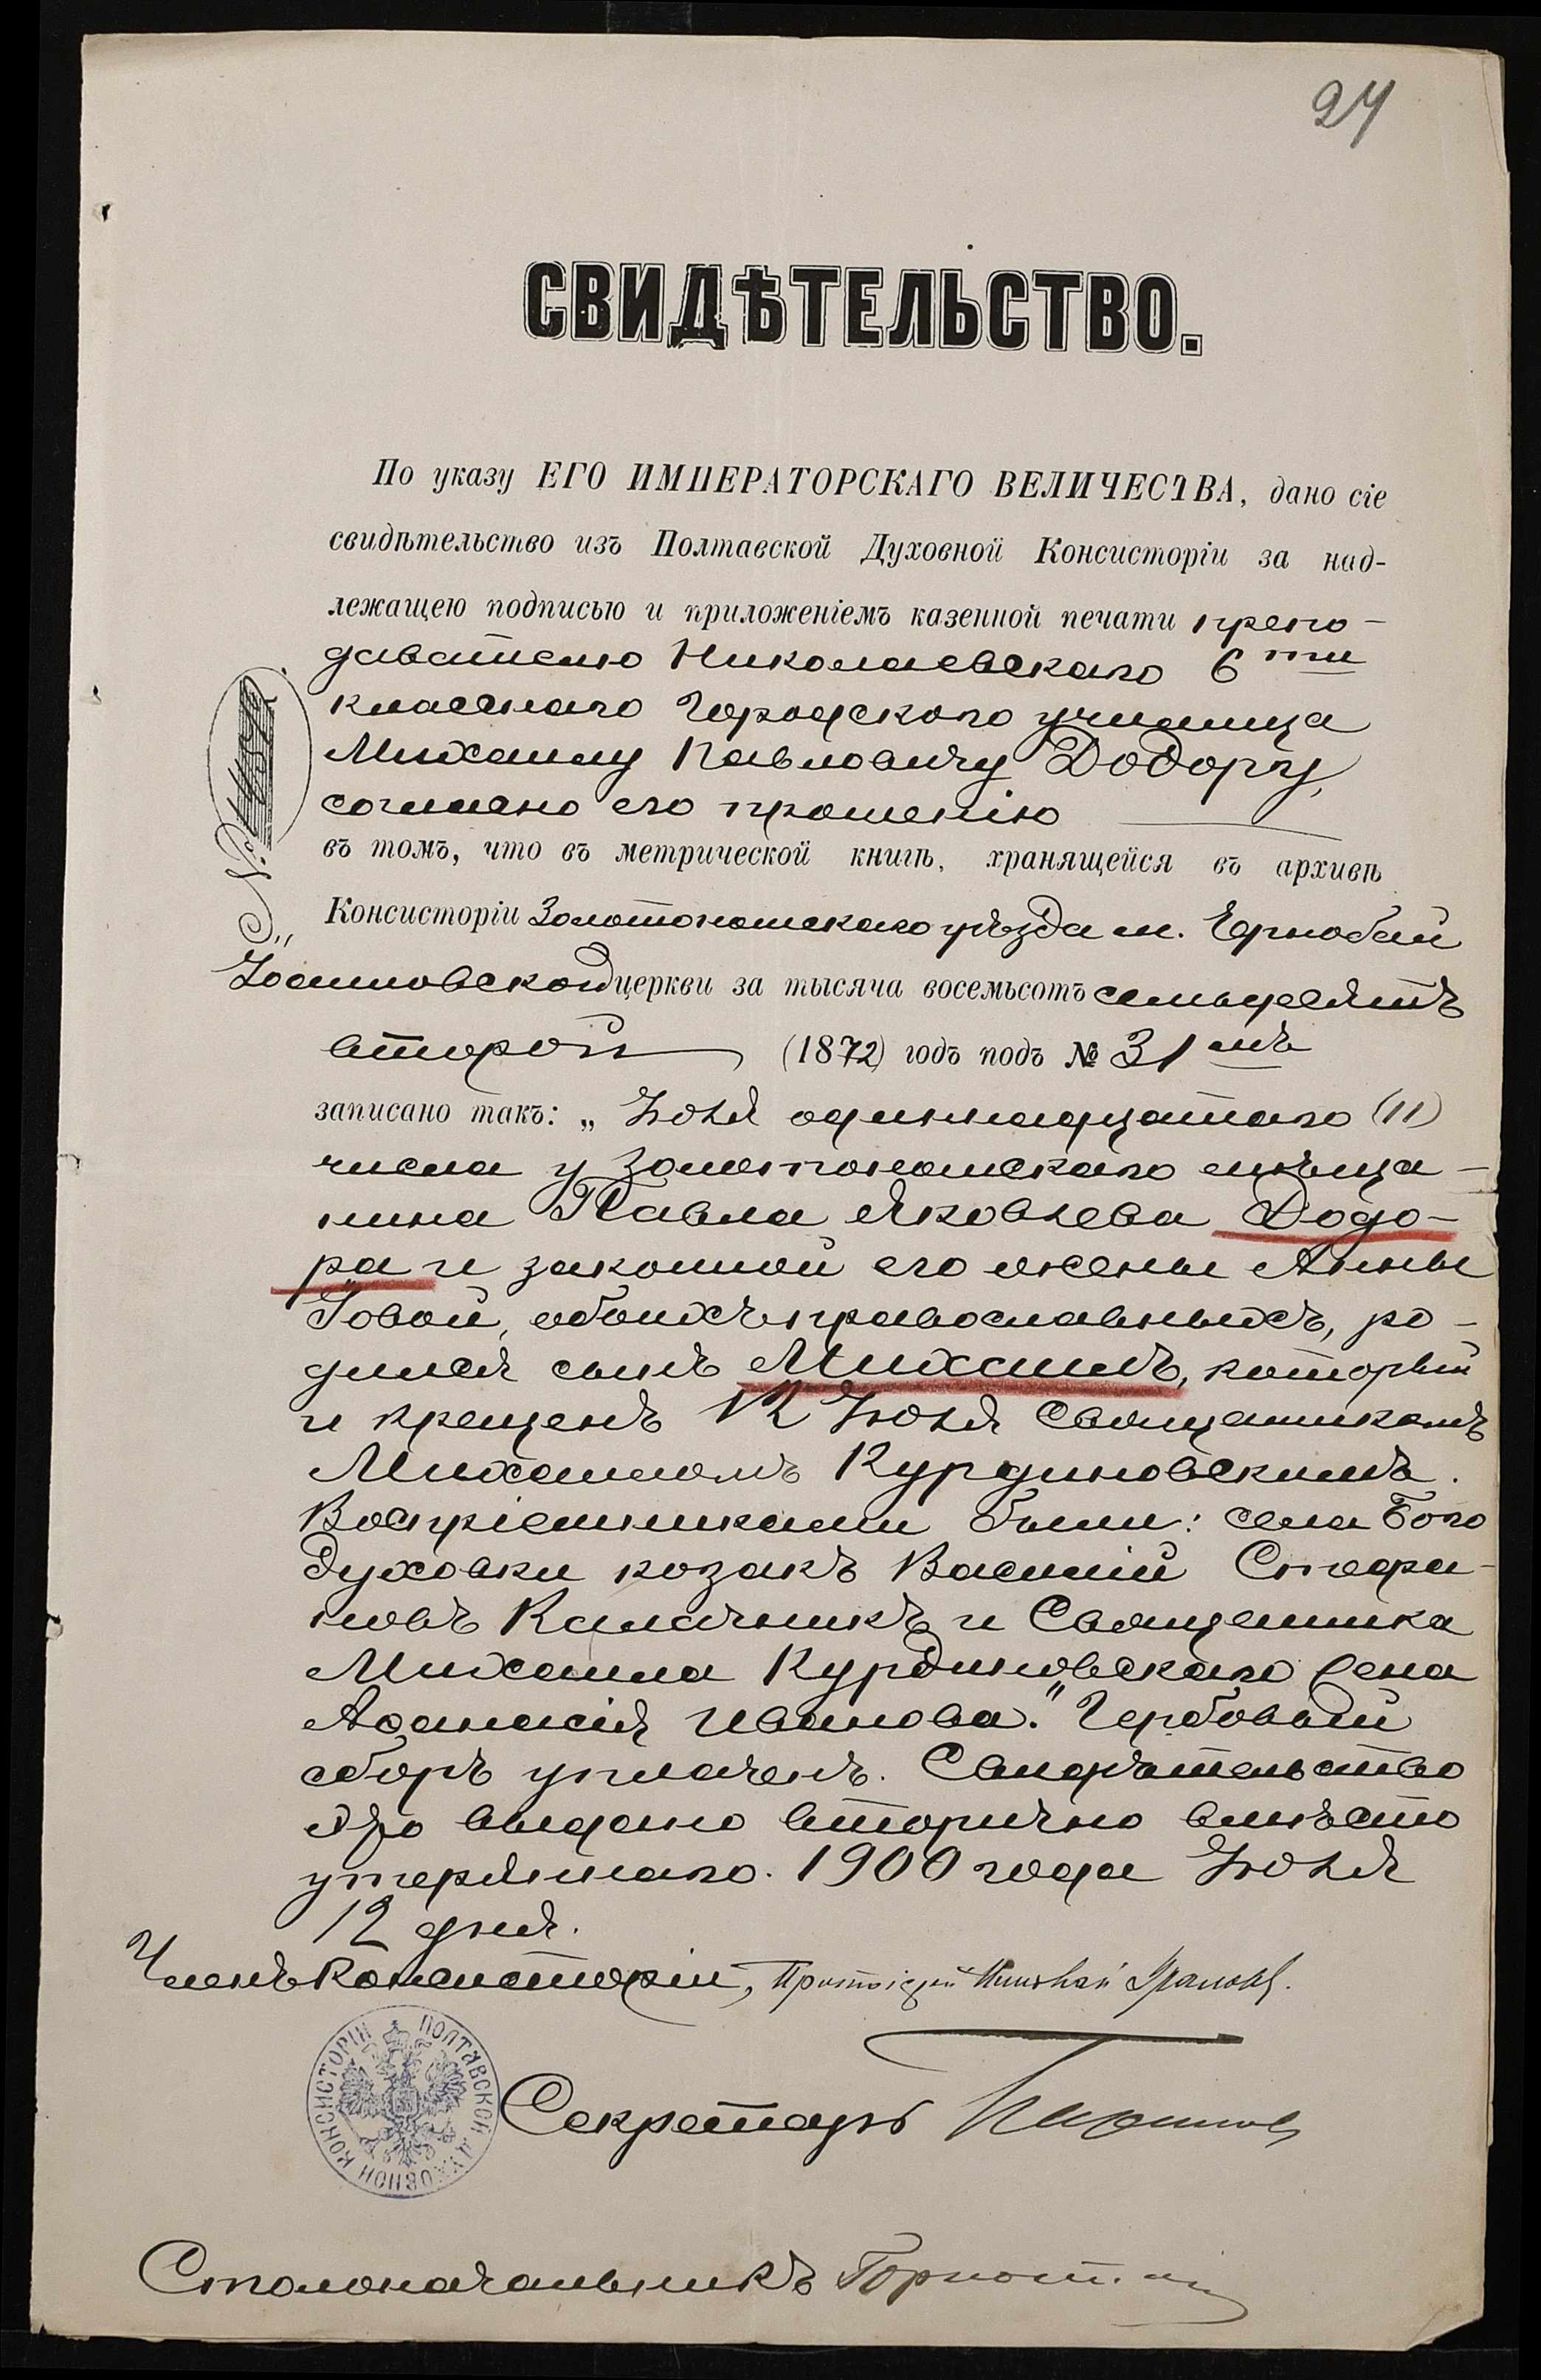 24
СВИДѢТЕЛЬСТВО.
По указу ЕГО ИМПЕРАТОРСКАГО ВЕЛИЧЕСТВА, дано сіе
свидѣтельство изъ Полтавской Духовной Консисторіи за над-
лежащею подписью и приложеніемъ казенной печати препо-
давателю Николаевскаго 6ти
класснаго Городскаго училища
Михаилу Павловичу Додору,
согласно его прошенію
въ томъ, что въ метрической книгѣ, хранящейся въ архивѣ
Консисторіи Золотоношскаго уѣзда м. Чернобай
Іоанновской церкви за тысяча восемьсотъ семьдесятъ
второй (1872) годъ подъ № 31мъ
записано такъ: „Іюня одиннадцатаго (11)
числа у Золотоношскаго мѣща-
нина Павла Яковлева Додо-
ра и законной его жены Анны
Іовой, обоихъ православныхъ, ро-
дился сынъ Михаилъ, который
и крещенъ 12 Іюня Священникомъ
Михаиломъ Курдиновскимъ.
Воспріемниками были: села Бого
духовки козакъ Василій Стефа-
новъ Калачникъ и Священника
Михаила Курдиновскаго жена
Афанасія Иванова." Гербовый
сборъ уплаченъ. Свидѣтельство
это выдано вторично вмѣсто
утеряннаго. 1900 года Іюня
12 дня.
Членъ Консисторіи, Протоіерей Николай
ПОЛТАВСКОЙ ДУХОВНОЙ КОНСИСТОРІИ
Секретарь
Столоначальникъ
№